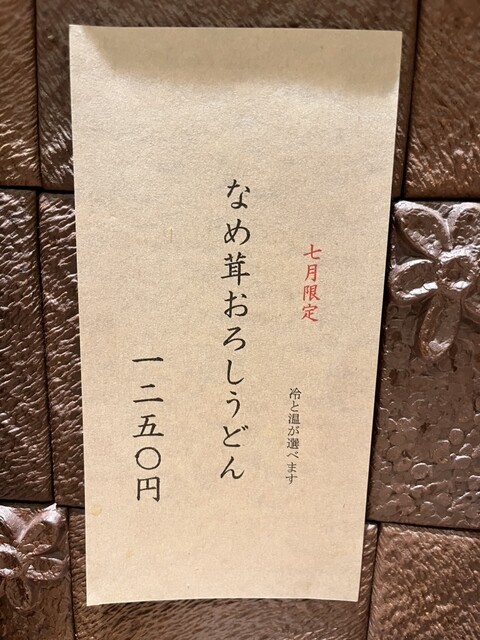 七月限定
冷と温が選べます
なめ茸おろしうどん
一二五〇円